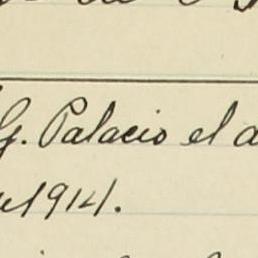 G. Palacio el a
1914.